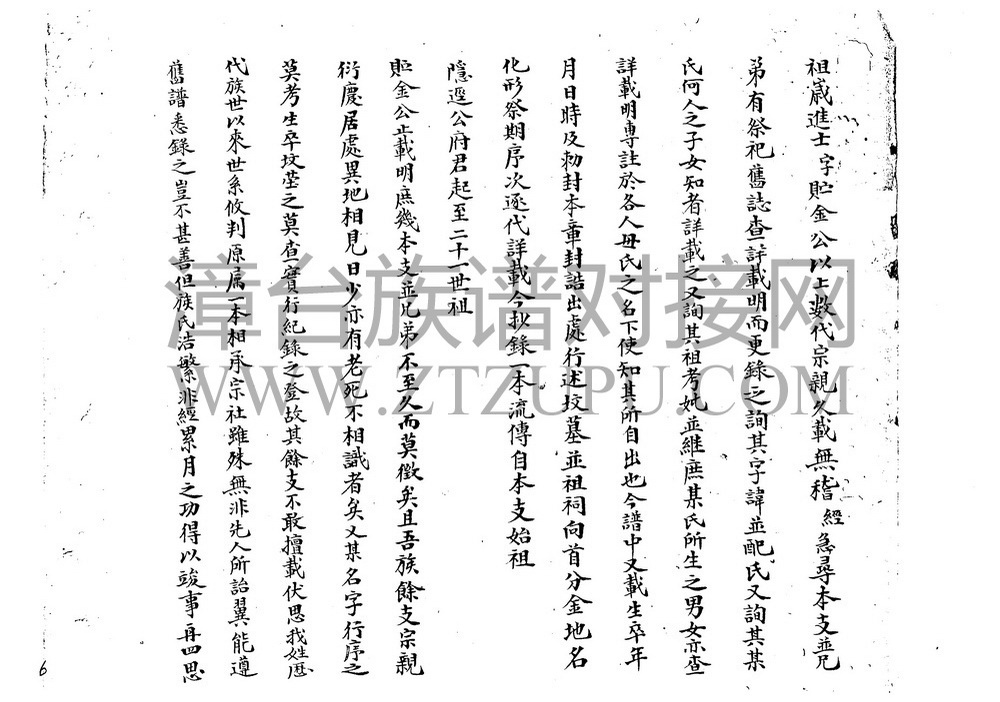 祖嵗進士字貯金公以上數代宗親久載無稽經急尋本支並兄
弟有祭祀舊誌查詳載明而更錄之詢其字諱並配氏又詢其某
氏何人之子女知者詳載之又詢其祖考妣並継庶某氏所生之男女亦查
詳載明專註於各人母氏之名下使知其所自出也今譜中又載生卒年
月日時及勅封本章封誥出處行述坟墓並祖祠向首分金地名
化形祭期序次逐代詳載今抄錄一本流傳自本支始祖
隱遯公府君起至二十一世祖
貯金公止載明庶幾本支並兄弟不至久而莫徵矣且吾族餘支宗親
衍慶居處異地相見日少亦有老死不相識者矣又某名字行序之
莫考生卒坟塋之莫查實行紀錄之登故其餘支不敢擅載伏思我姓歷
代族世以來世系攸判原属一本相承宗社雖殊無非先人所詒翼能遵
舊譜悉錄之豈不甚善但族氏浩繁非經累月之功得以竣事再四思
6
漳台族谱对接网
WWW.ZTZUPU.COM